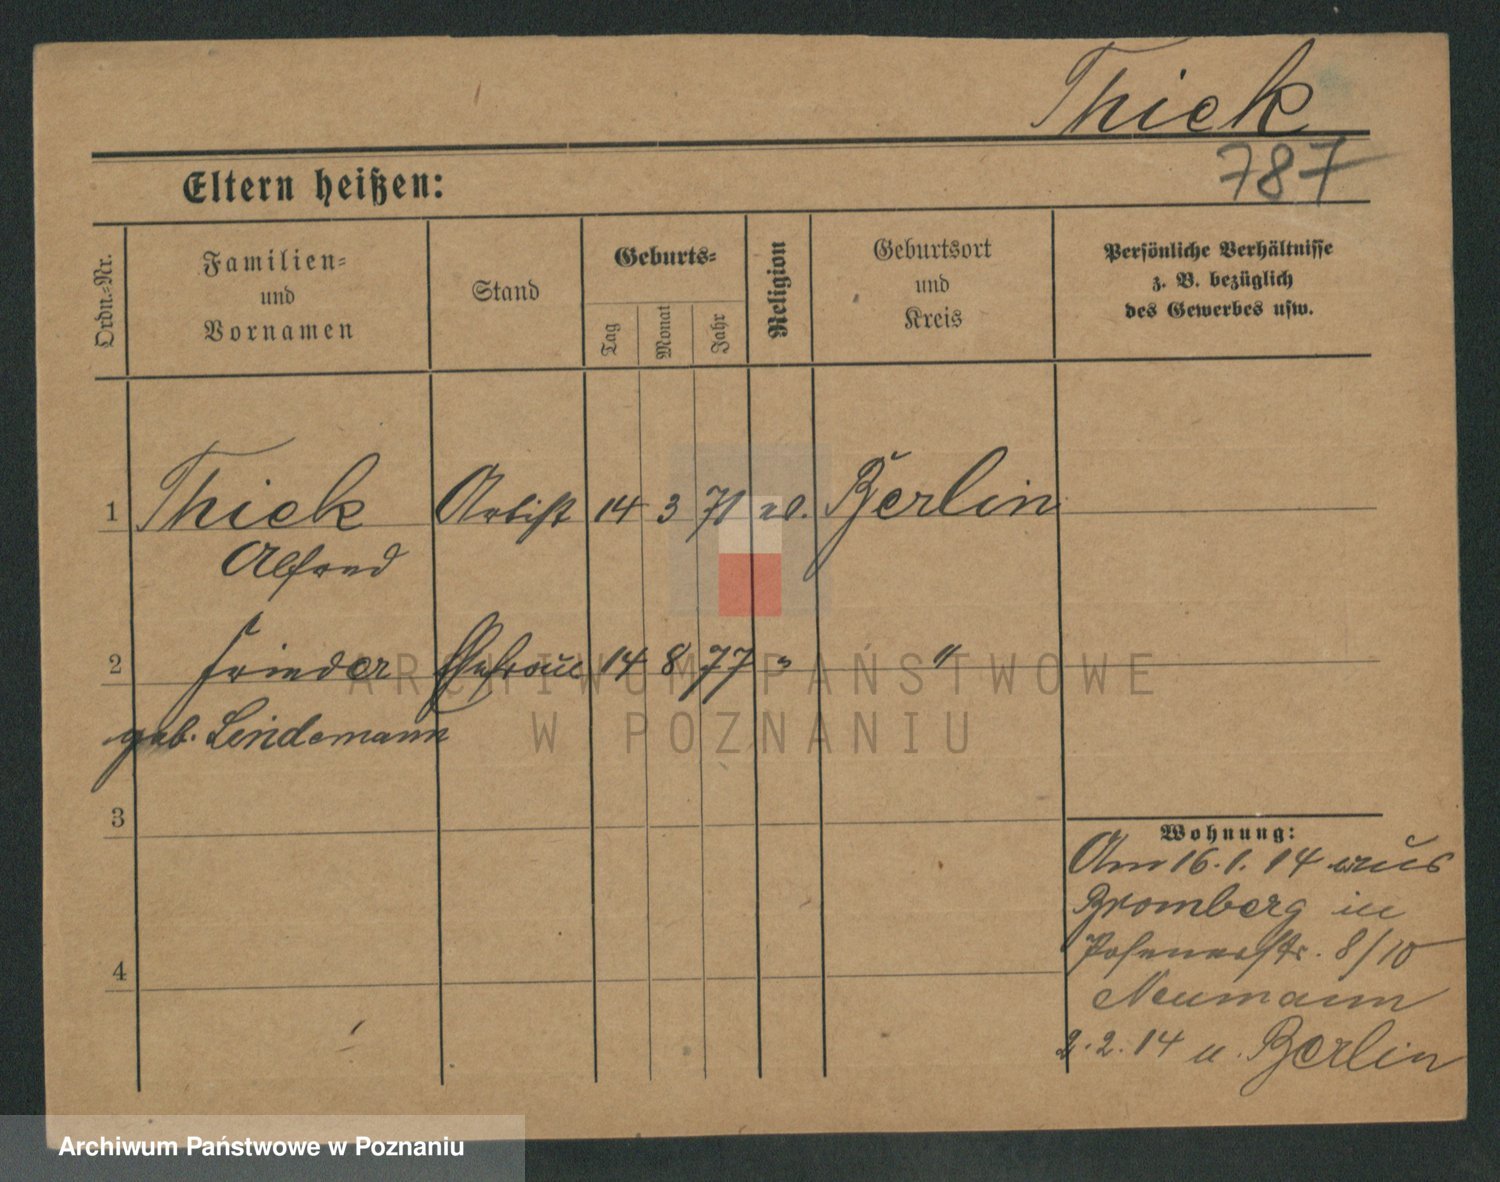 Thiek
787
Eltern heißen:
Ordn.-Nr.
Familien-
und
Vornamen
Stand
Geburts-
Tag
Monat
Jahr
Religion
Geburtsort
und
Kreis
Persönliche Verhältnisse
z. B. bezüglich
des Gewerbes usw.
1 Thiek Artist 14 3 71 Berlin
Alfred
2 Ehefrau 14 8 77 " "
geb. Lindemann
3
4
Wohnung:
Am 16.1.14 aus
Bromberg in
Posenerstr. 8/10
Neumann
2.2.14 n. Berlin
ARCHIWUM PAŃSTWOWE
W POZNANIU
Archiwum Państwowe w Poznaniu